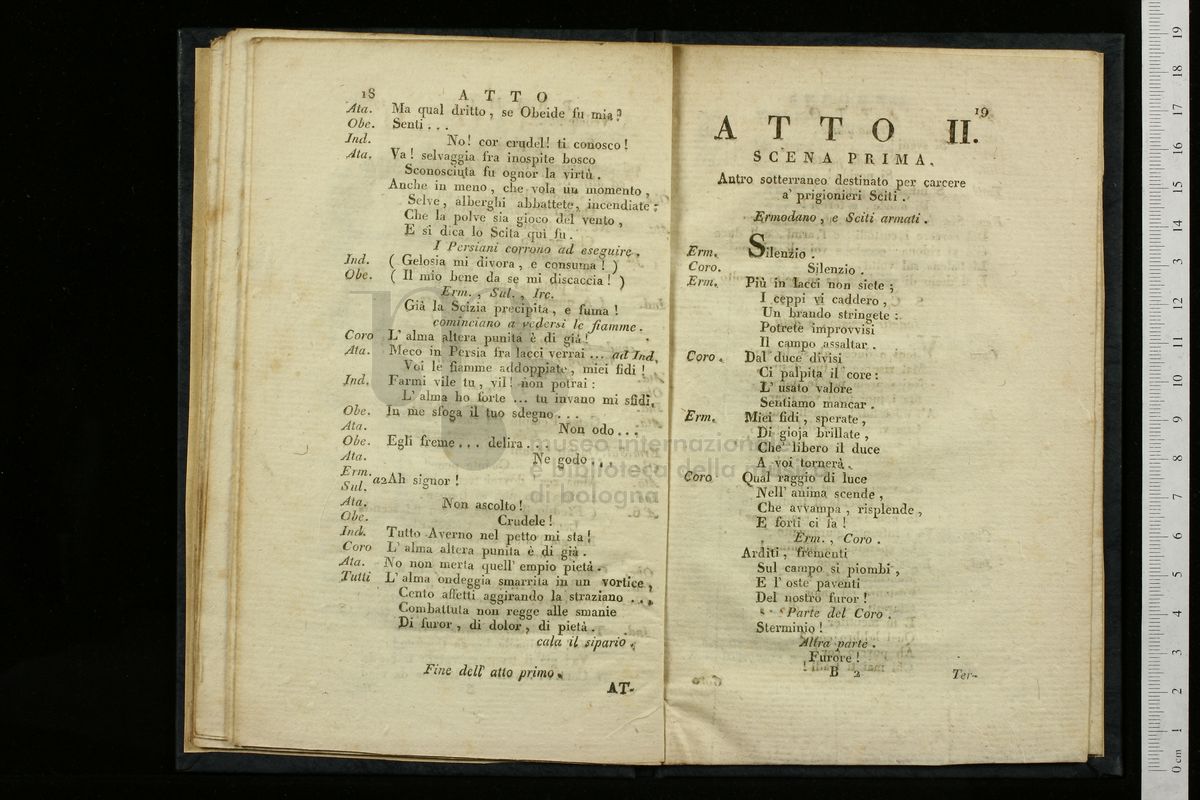 18 ATTO
Ata. Ma qual dritto, se Obeide fu mia?
Obe. Senti...
Ind. No! cor crudel! ti conosco!
Ata. Va! selvaggia fra inospite bosco
Sconosciuta fu ognor la virtù.
Anche in meno, che vola un momento,
Selve, alberghi abbattete, incendiate:
Che la polve sia gioco del vento,
E si dica lo Scita qui fu.
I Persiani corrono ad eseguire.
Ind. ( Gelosia mi divora, e consuma! )
Obe. ( Il mio bene da se mi discaccia! )
Erm., Sul., Irc.
Già la Scizia precipita, e fuma!
cominciano a vedersi le fiamme.
Coro L' alma altera punita è di già!
Ata. Meco in Persia fra lacci verrai... ad Ind.
Voi le fiamme addoppiate, miei fidi!
Ind. Farmi vile tu, vil! non potrai:
L' alma ho forte... tu invano mi sfidi.
Obe. In me sfoga il tuo sdegno...
Ata. Non odo...
Obe. Egli freme... delira...
Ata. Ne godo...
Erm.
Sul. a2 Ah signor!
Ata. Non ascolto!
Obe. Crudele!
Ind. Tutto Averno nel petto mi sta!
Coro L' alma altera punita è di già.
Ata. No non merta quell' empio pietà.
Tutti L' alma ondeggia smarrita in un vortice,
Cento affetti aggirando la straziano...
Combattuta non regge alle smanie
Di furor, di dolor, di pietà.
cala il sipario.
Fine dell' atto primo.
AT-
19
ATTO II.
SCENA PRIMA.
Antro sotterraneo destinato per carcere
a' prigionieri Sciti.
Ermodano, e Sciti armati.
Erm. Silenzio.
Coro. Silenzio.
Erm. Più in lacci non siete;
I ceppi vi caddero,
Un brando stringete:
Potrete improvvisi
Il campo assaltar.
Coro. Dal duce divisi
Ci palpita il core:
L' usato valore
Sentiamo mancar.
Erm. Miei fidi, sperate,
Di gioja brillate,
Che libero il duce
A voi tornerà.
Coro Qual raggio di luce
Nell' anima scende,
Che avvampa, risplende,
E forti ci fa!
Erm., Coro.
Arditi, frementi
Sul campo si piombi,
E l' oste paventi
Del nostro furor!
Parte del Coro.
Sterminio!
Altra parte.
Furore!
B 2 Ter-
museo internazionale
e biblioteca della musica
di bologna
0 cm 1 2 3 4 5 6 7 8 9 10 11 12 13 14 15 16 17 18 19